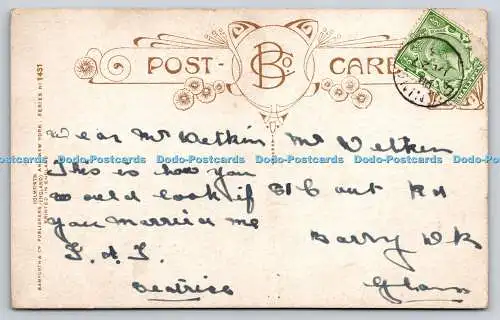 POST-CARD
B Co
BAMFORTH & CO. PUBLISHERS (ENGLAND) AND NEW YORK. SERIES No 1451
HOLMFIRTH
PRINTED IN ENGLAND
Dear Mr Watkin
This is how you
would look if
you married me
Beatrice
Mr Watkin
Rd
Barry Dk
Glam
Dodo-Postcards Dodo-Postcards Dodo-Postcards Dodo-Postcards Dodo-Postcards